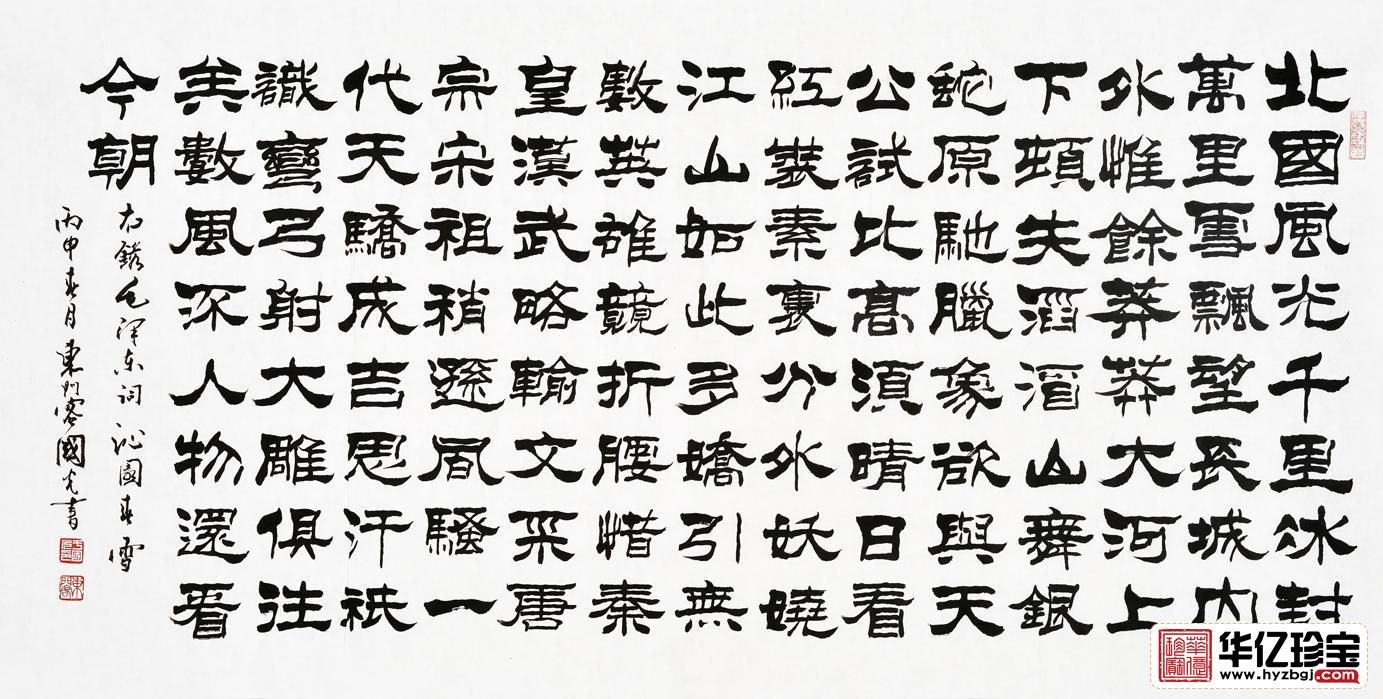 北國風光千里冰封
萬里雪飄望長城内
外惟餘莽莽大河上
下頓失滔滔山舞銀
蛇原馳臘象欲與天
公試比高須晴日看
紅裝素裹分外妖嬈
江山如此多嬌引無
數英雄競折腰惜秦
皇漢武略輸文采唐
宗宋祖稍遜風騷一
代天驕成吉思汗祇
識彎弓射大雕俱往
矣數風流人物還看
今朝
右錄毛澤东詞沁園春雪
丙申春月東門客國光書
华亿珍宝
www.hyzbgj.com